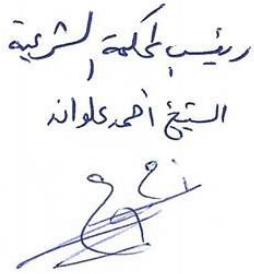 رئيس المحكمة الشرعية
الشيخ أحمد علوان